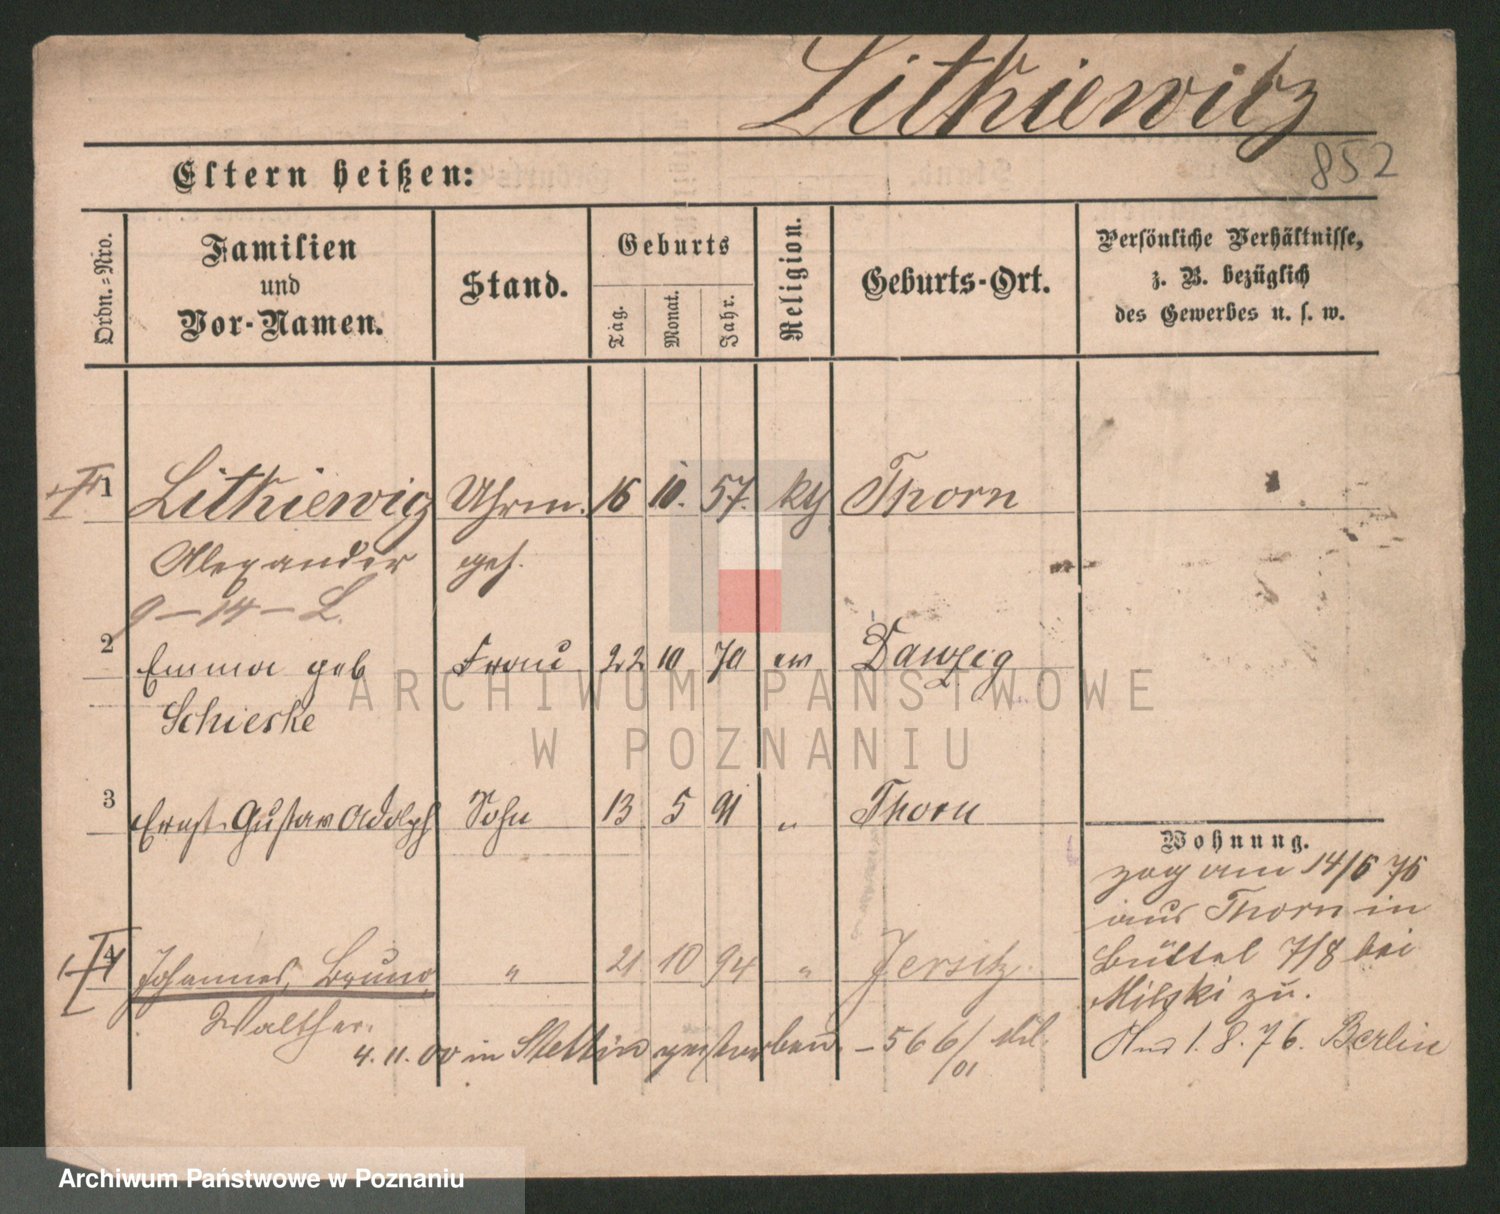 Litkiewitz
852
Eltern heißen:
Ordn.-Nro.
Familien
und
Vor-Namen.
Stand.
Geburts
Tag.
Monat.
Jahr.
Religion.
Geburts-Ort.
Persönliche Verhältnisse,
z. B. bezüglich
des Gewerbes u. s. w.
1 Litkiewig Uhrm. 16 10. 57. kth Thorn
Alexander geh.
9 - 14 - L.
2 Emma geb Frau 22 10 70 ew Danzig
Schieske
3 Ernst Gustav Adolph Sohn 13 5 91 „ Thorn
Wohnung.
zog am 14/6 76
aus Thorn in
Büttel 7/8 bei
Milski zu.
1. 8. 76. Berlin
4 Johannes, Bruno, " 21 10 94 " Jersitz
Walther.
4. 11. 00 in Stettin gestorben. - 566/01 Mil.
ARCHIWUM PAŃSTWOWE
W POZNANIU
Archiwum Państwowe w Poznaniu